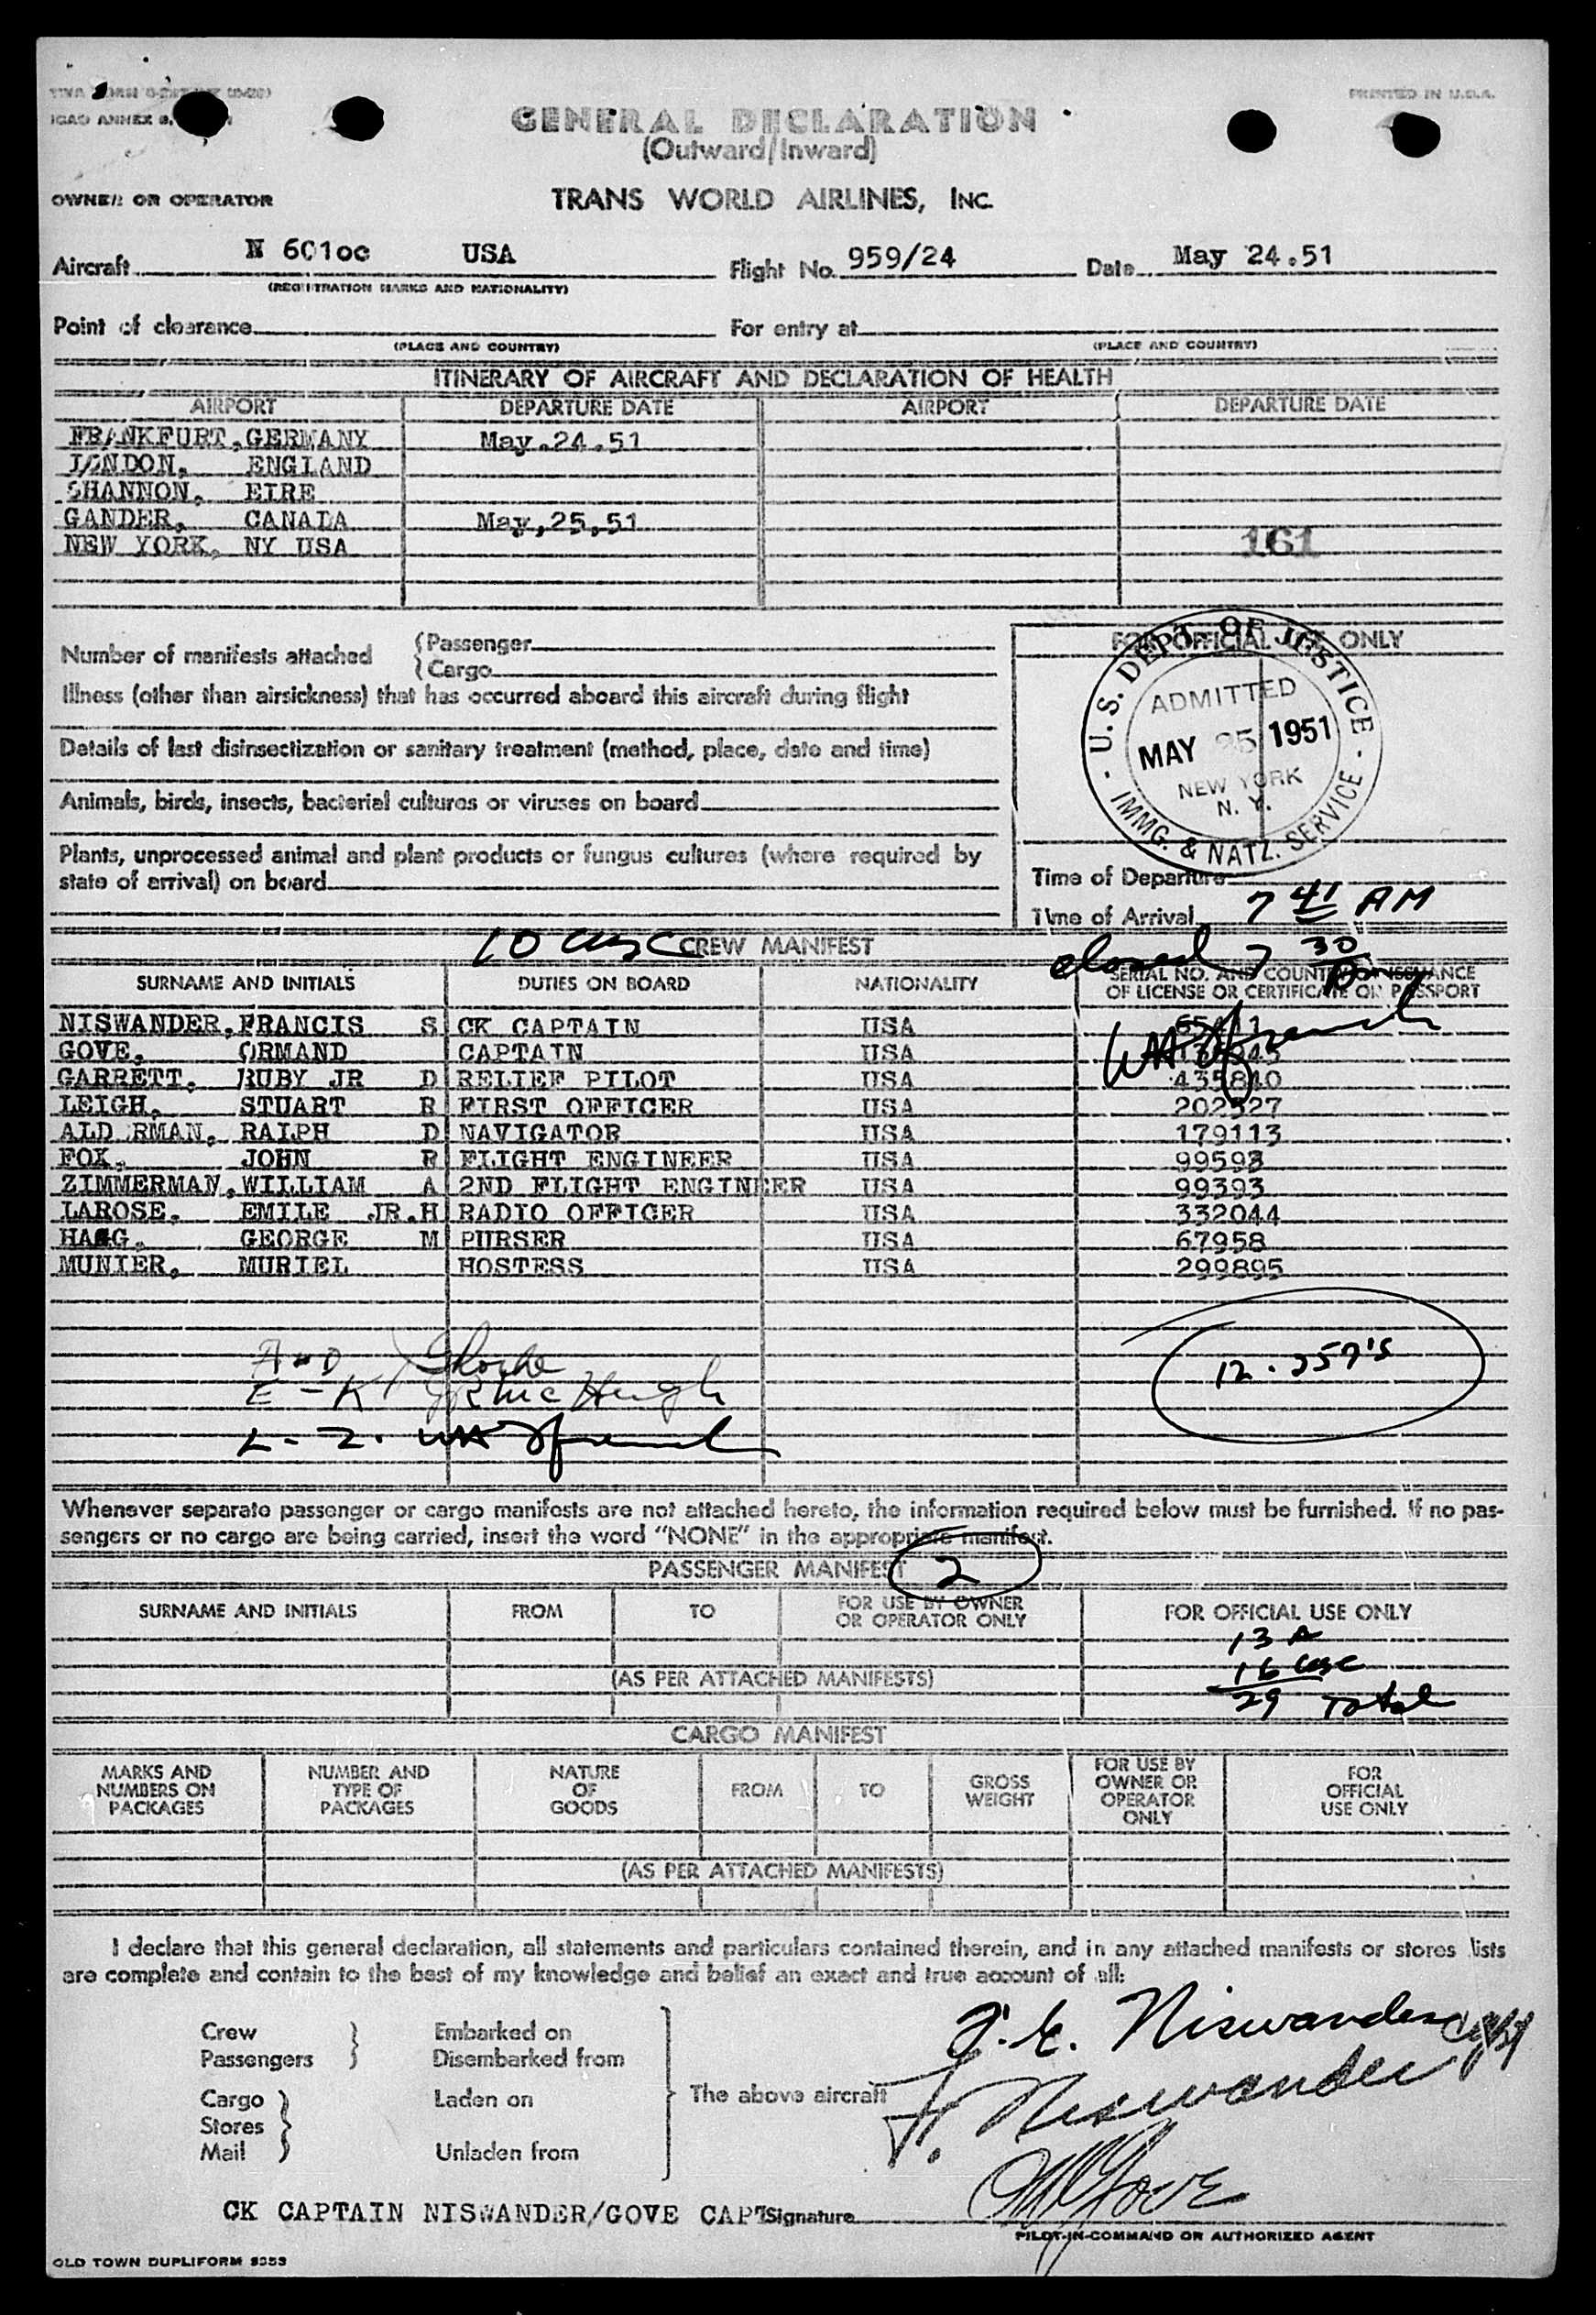 PRINTED IN U.S.A.
ICAO ANNEX 9,
GENERAL DECLARATION
(Outward/Inward)
OWNER OR OPERATOR TRANS WORLD AIRLINES, INC.
Aircraft N 6010c USA Flight No. 959/24 Date May 24.51
(REGISTRATION MARKS AND NATIONALITY)
Point of clearance For entry at
(PLACE AND COUNTRY) (PLACE AND COUNTRY)
ITINERARY OF AIRCRAFT AND DECLARATION OF HEALTH
AIRPORT DEPARTURE DATE AIRPORT DEPARTURE DATE
FRANKFURT, GERMANY May.24.51
LONDON, ENGLAND
SHANNON, EIRE
GANDER, CANADA May,25,51
NEW YORK, NY USA 161
Number of manifests attached {Passenger
{Cargo
FOR OFFICIAL USE ONLY
U.S. DEPT. OF JUSTICE - IMMG. & NATZ. SERVICE -
ADMITTED
MAY 25 1951
NEW YORK
N. Y.
Illness (other than airsickness) that has occurred aboard this aircraft during flight
Details of last disinsectization or sanitary treatment (method, place, date and time)
Animals, birds, insects, bacterial cultures or viruses on board
Plants, unprocessed animal and plant products or fungus cultures (where required by
state of arrival) on board
Time of Departure
Time of Arrival 7 41 AM
10 CREW MANIFEST closed 7 30
SURNAME AND INITIALS DUTIES ON BOARD NATIONALITY SERIAL NO. AND COUNTRY OF ISSUANCE
OF LICENSE OR CERTIFICATE OR PASSPORT
NISWANDER, FRANCIS S CK CAPTAIN USA
GOVE, ORMAND CAPTAIN USA
GARRETT, RUBY JR D RELIEF PILOT USA 435840
LEIGH, STUART R FIRST OFFICER USA 202527
ALD RMAN, RALPH D NAVIGATOR USA 179113
FOX, JOHN R FLIGHT ENGINEER USA 99593
ZIMMERMAN, WILLIAM A 2ND FLIGHT ENGINEER USA 99393
LAROSE, EMILE JR.H RADIO OFFICER USA 332044
HAGG, GEORGE M PURSER USA 67958
MUNIER, MURIEL HOSTESS USA 299895
A - D
E - K McHugh
L - Z.
12 - 257's
Whenever separate passenger or cargo manifests are not attached hereto, the information required below must be furnished. If no pas-
sengers or no cargo are being carried, insert the word "NONE" in the appropriate manifest.
PASSENGER MANIFEST 2
SURNAME AND INITIALS FROM TO FOR USE BY OWNER
OR OPERATOR ONLY FOR OFFICIAL USE ONLY
13 A
16 usc
(AS PER ATTACHED MANIFESTS)
29 Total
CARGO MANIFEST
MARKS AND
NUMBERS ON
PACKAGES NUMBER AND
TYPE OF
PACKAGES NATURE
OF
GOODS FROM TO GROSS
WEIGHT FOR USE BY
OWNER OR
OPERATOR
ONLY FOR
OFFICIAL
USE ONLY
(AS PER ATTACHED MANIFESTS)
I declare that this general declaration, all statements and particulars contained therein, and in any attached manifests or stores lists
are complete and contain to the best of my knowledge and belief an exact and true account of all:
Crew } Embarked on
Passengers } Disembarked from
Cargo } Laden on The above aircraft
Stores }
Mail } Unladen from
F. E. Niswander
F. Niswander
CK CAPTAIN NISWANDER/GOVE CAPT Signature Gove
PILOT-IN-COMMAND OR AUTHORIZED AGENT
OLD TOWN DUPLIFORM